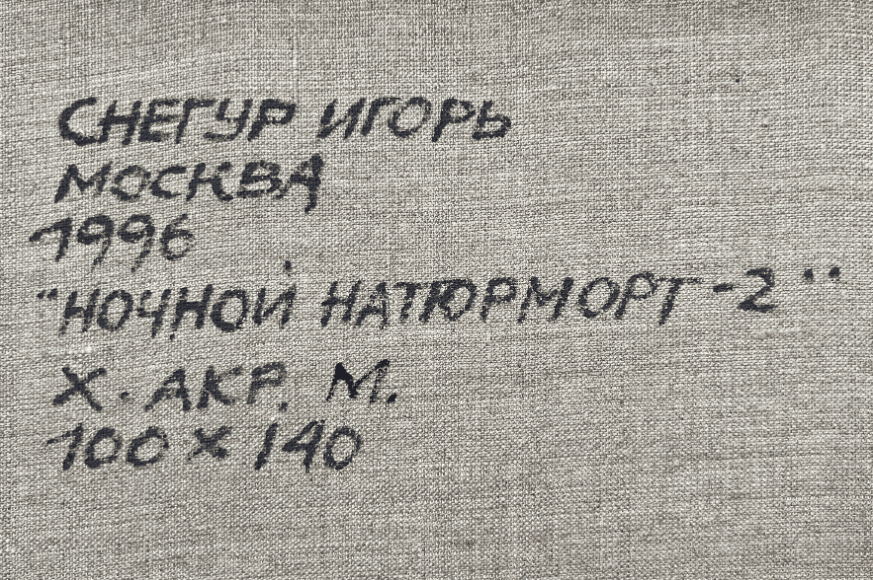 СНЕГУР ИГОРЬ
МОСКВА
1996
"НОЧНОЙ НАТЮРМОРТ-2"
Х. АКР. М.
100 х 140